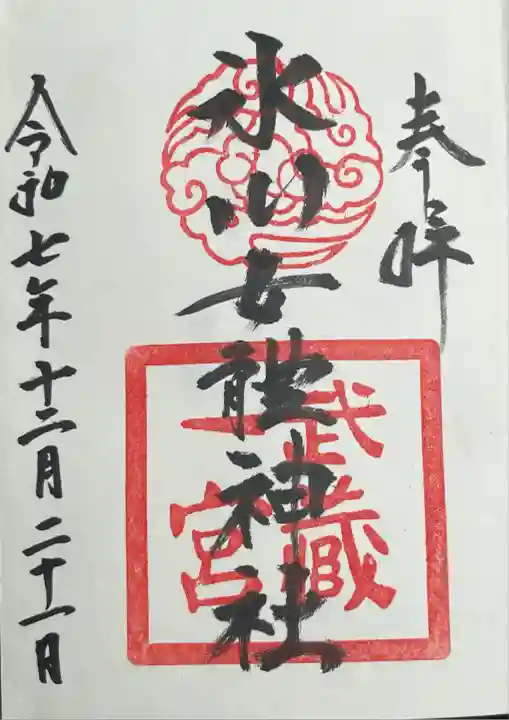 奉拝
氷川女體神社
武蔵
一宮
令和七年十二月二十一日